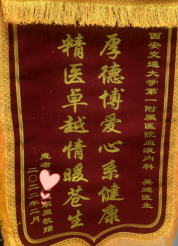 西安交通大学第一附属医院血液内科
医生
厚德博爱心系健康
精医卓越情暖苍生
患者
敬赠
二〇二二年二月